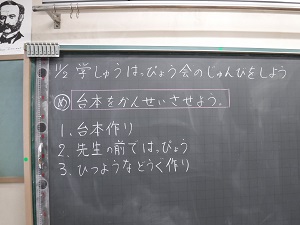 11/2 学しゅうはっぴょう会のじゅんびをしよう
め 台本をかんせいさせよう。
1. 台本作り
2. 先生の前ではっぴょう
3. ひつようなどうぐ作り